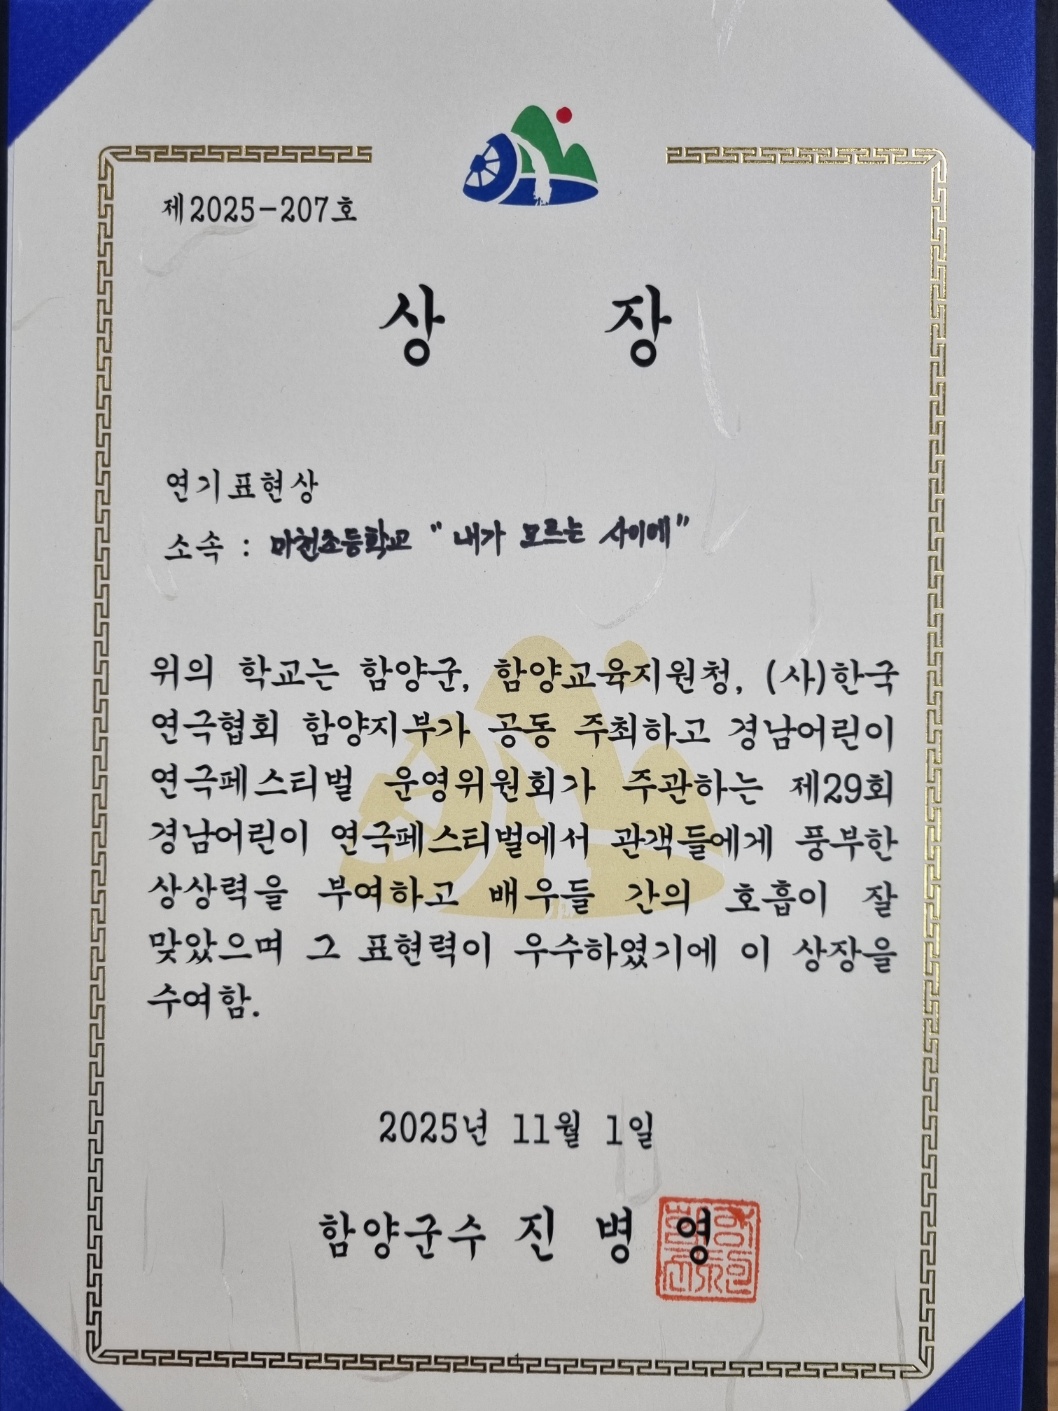 제2025-207호
상 장
연기표현상
소속 : 마천초등학교 "내가 모르는 사이에"
위의 학교는 함양군, 함양교육지원청, (사)한국
연극협회 함양지부가 공동 주최하고 경남어린이
연극페스티벌 운영위원회가 주관하는 제29회
경남어린이 연극페스티벌에서 관객들에게 풍부한
상상력을 부여하고 배우들 간의 호흡이 잘
맞았으며 그 표현력이 우수하였기에 이 상장을
수여함.
2025년 11월 1일
함양군수 진 병 영